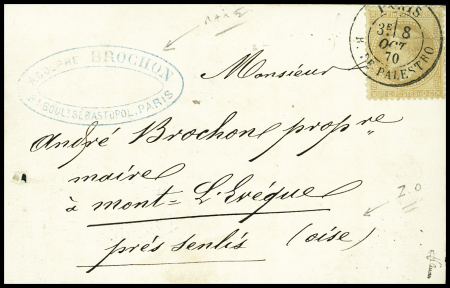 PARIS
3E 8
OCT
70
R. DE PALESTRO
ADOLPHE BROCHON
BOULT SÉBASTOPOL. PARIS
Monsieur
André Brochon propre
maire
à mont=L'Evêque
près senlis (oise)